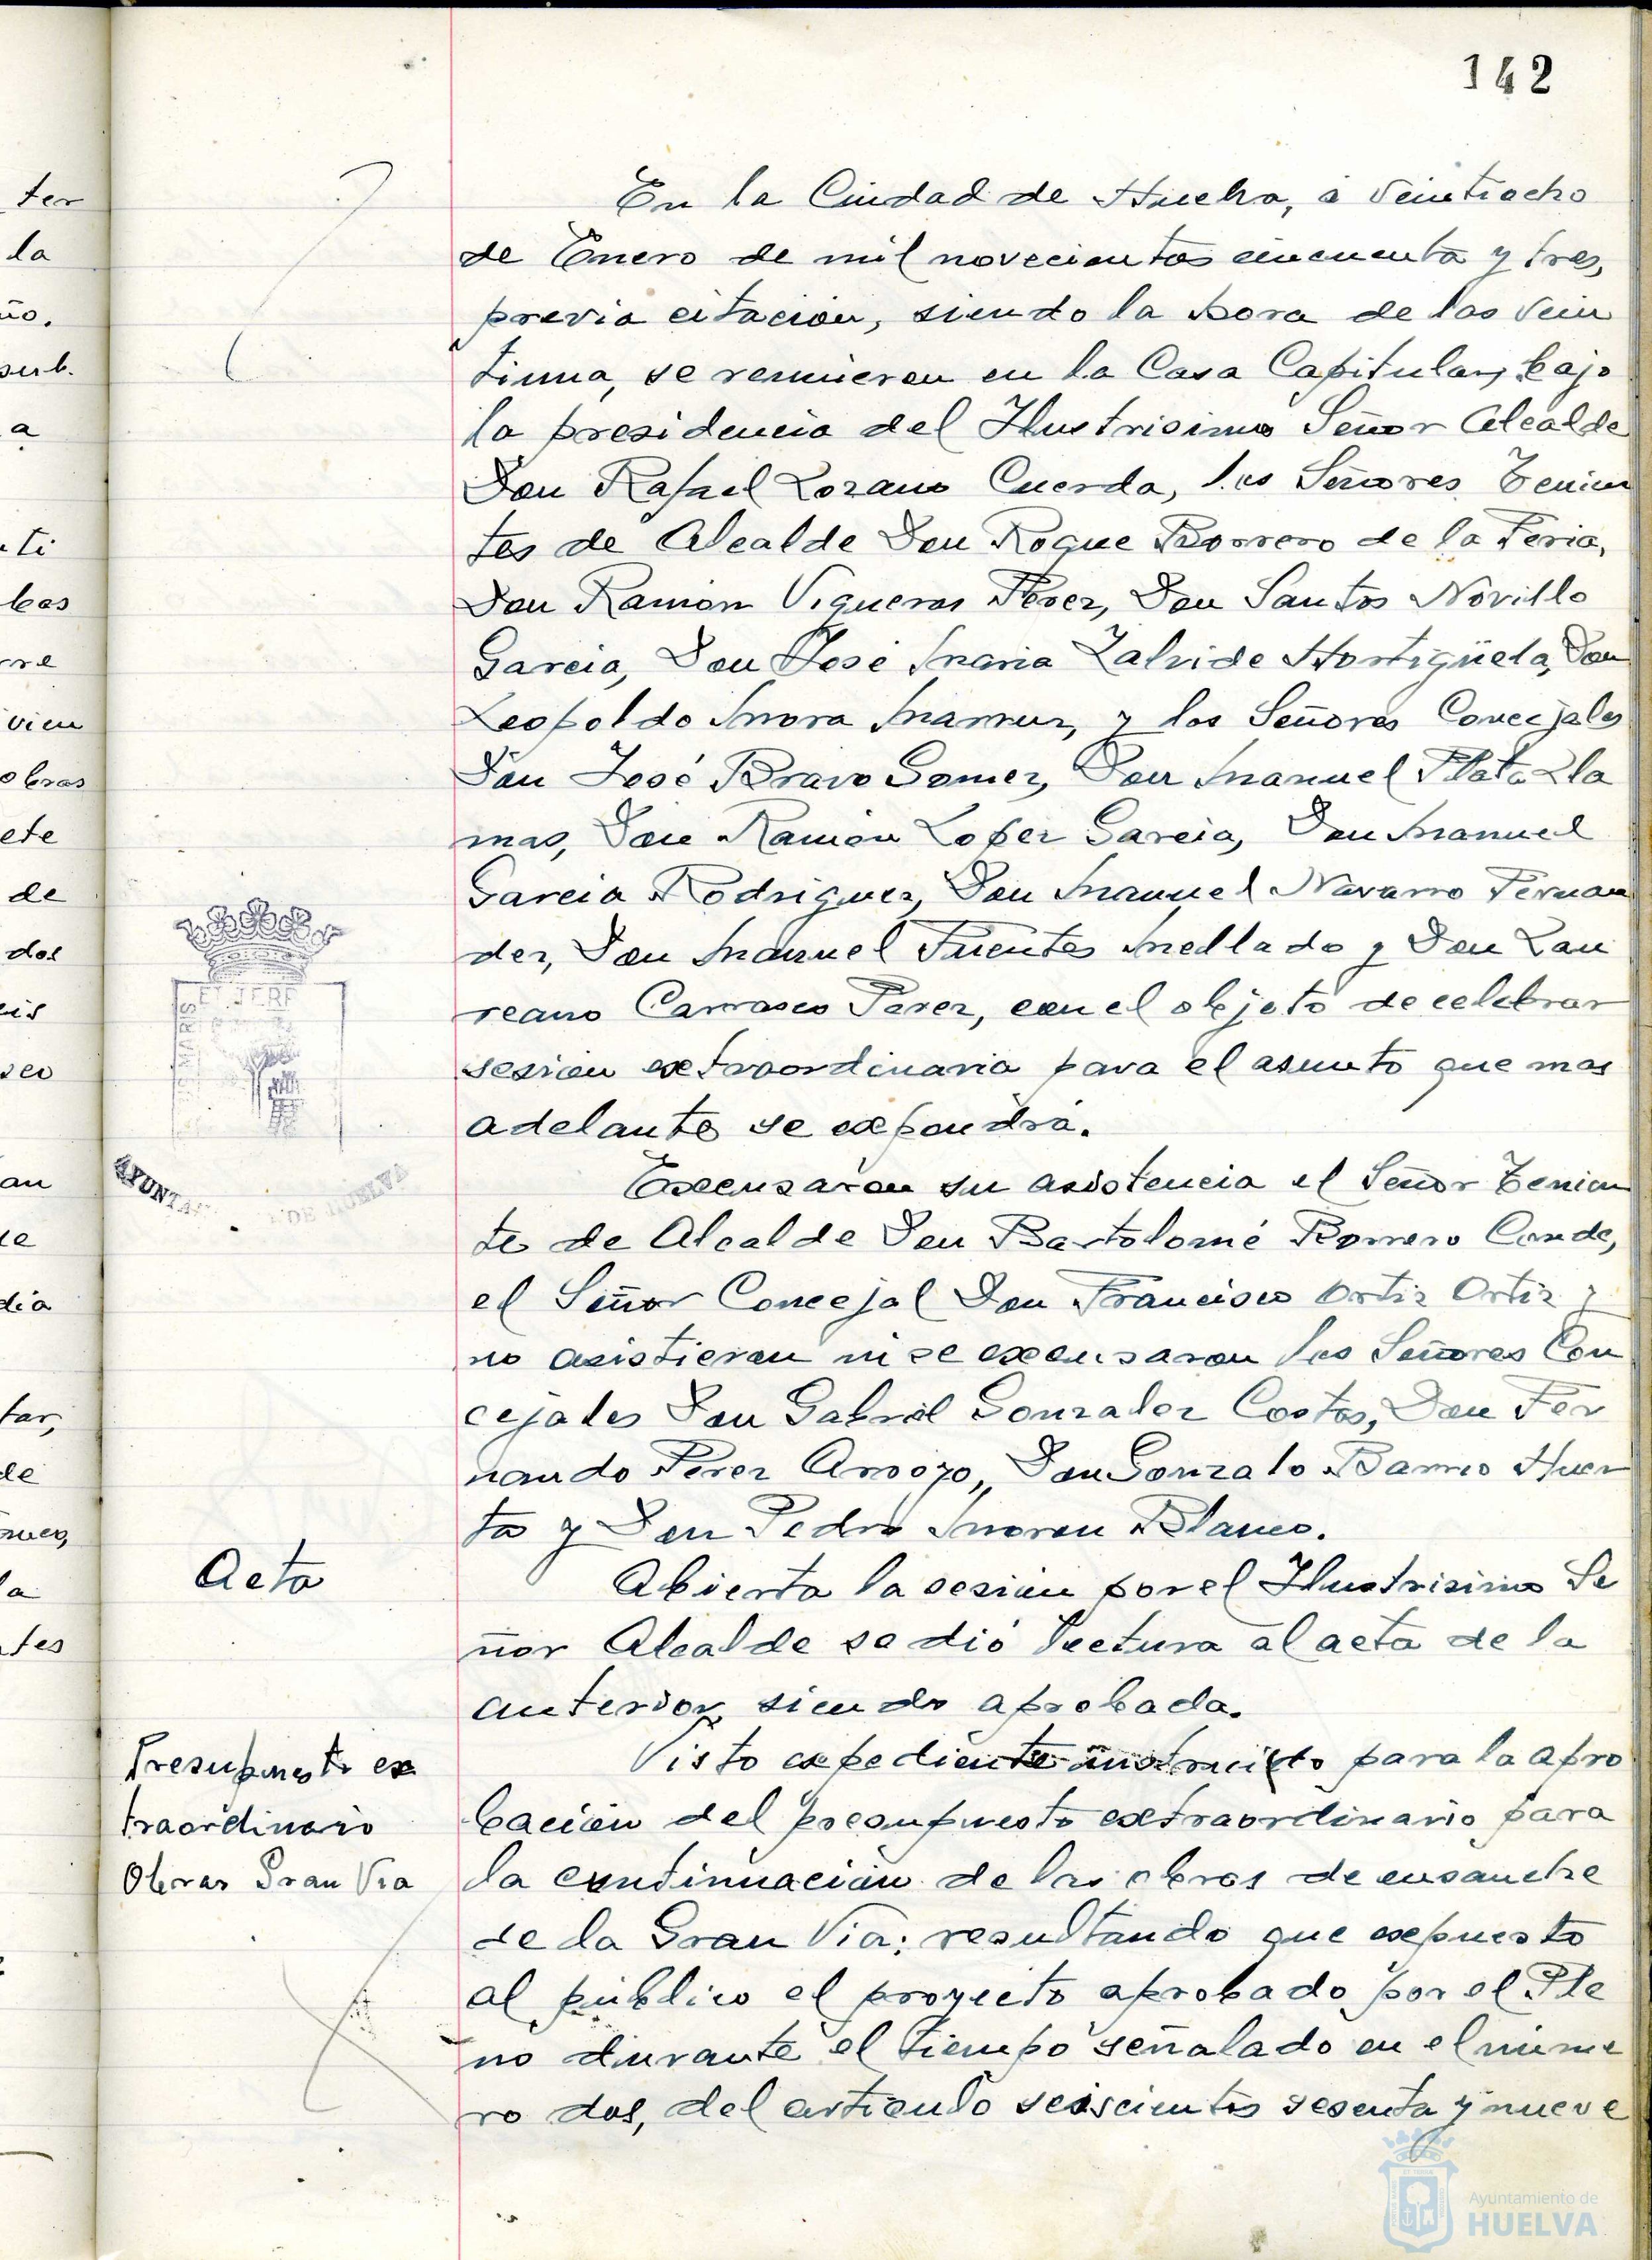 142
En la Ciudad de Huelva, a veintiocho
de Enero de mil novecientos cincuenta y tres,
previa citación, siendo la hora de las vein
tiuna, se reunieron en la Casa Capitular, bajo
la presidencia del Ilustrisimo Señor Alcalde
Don Rafael Lozano Cuerda, los Señores Tenien
tes de Alcalde Don Roque Borrero de la Feria,
Don Ramón Vigueras Perez, Don Santos Novillo
Garcia, Don José Maria Zalvide Hortigüela, Don
Leopoldo Mora Mamur, y los Señores Concejales
Don José Bravo Gomez, Don Manuel Plata Lla
mas, Don Ramón Lopez Garcia, Don Manuel
Garcia Rodriguez, Don Manuel Navarro Fernan
dez, Don Manuel Fuentes Mellado y Don Lau
reano Carrasco Perez, con el objeto de celebrar
sesion extraordinaria para el asunto que mas
adelante se expondrá.
Excusaron su asistencia el Señor Tenien
te de Alcalde Don Bartolomé Romero Conde,
el Señor Concejal Don Francisco Ortiz Ortiz y
no asistieron ni se excusaron los Señores Con
cejales Don Gabriel Gonzalez Costas, Don Fer
nando Perez Arroyo, Don Gonzalo Barrio Huer
ta y Don Pedro Moron Blanco.
Acta
Abierta la sesion por el Ilustrisimo Se
ñor Alcalde se dió lectura al acta de la
anterior, siendo aprobada.
Presupuesto ex
traordinario
Obras Gran Via
Visto expediente instruido para la apro
bación del presupuesto extraordinario para
la continuación de las obras de ensanche
de la Gran Via; resultando que expuesto
al público el proyecto aprobado por el Ple
no durante el tiempo señalado en el núme
ro dos, del articulo seiscientos sesenta y nueve
AYUNTA
DE HUELVA
Ayuntamiento de
HUELVA